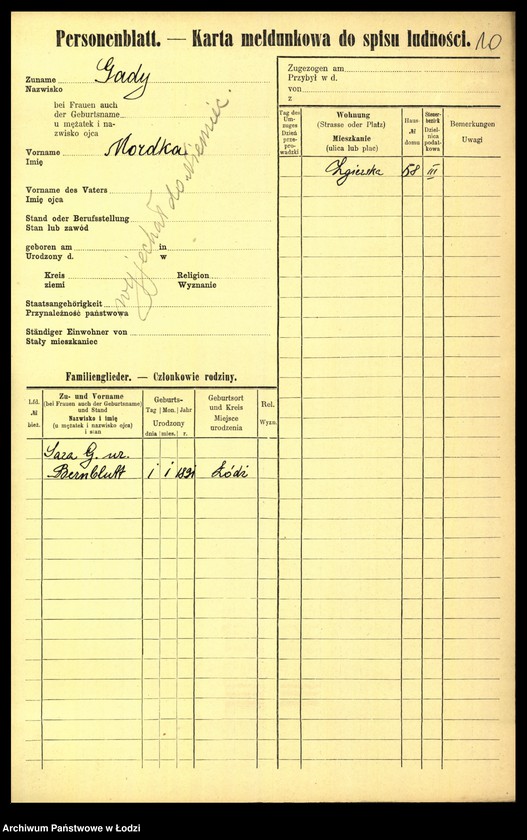 Personenblatt. — Karta meldunkowa do spisu ludności. 10
Zuname Gady
Nazwisko
bei Frauen auch
der Geburtsname
u mężatek i na-
zwisko ojca
Vorname Mordka
Imię
Vorname des Vaters
Imię ojca
Stand oder Berufsstellung
Stan lub zawód
geboren am in
Urodzony d. w
Kreis Religion
ziemi Wyznanie
Staatsangehörigkeit
Przynależność państwowa
Ständiger Einwohner von
Stały mieszkaniec
wyjechał do Niemiec.
Familienglieder. — Członkowie rodziny.
Lfd.
№
bież.
Zu- und Vorname
(bei Frauen auch der Geburtsname)
und Stand
Nazwisko i imię
(u mężatek i nazwisko ojca)
i stan
Geburts-
Tag Mon. Jahr
Urodzony
dnia mies. r.
Geburtsort
und Kreis
Miejsce
urodzenia
Rel.
Wyzn.
Sara G. ur.
Bernblutt 1 1 1891 Łódź
Zugezogen am
Przybył w d.
von
z
Tag des
Um-
zuges
Dzień
prze-
prowadzki
Wohnung
(Strasse oder Platz)
Mieszkanie
(ulica lub plac)
Haus
№
domu
Steuer-
bezirk
Dziel-
nica
podat-
kowa
Bemerkungen
Uwagi
Zgierska 58 III
Archiwum Państwowe w Łodzi